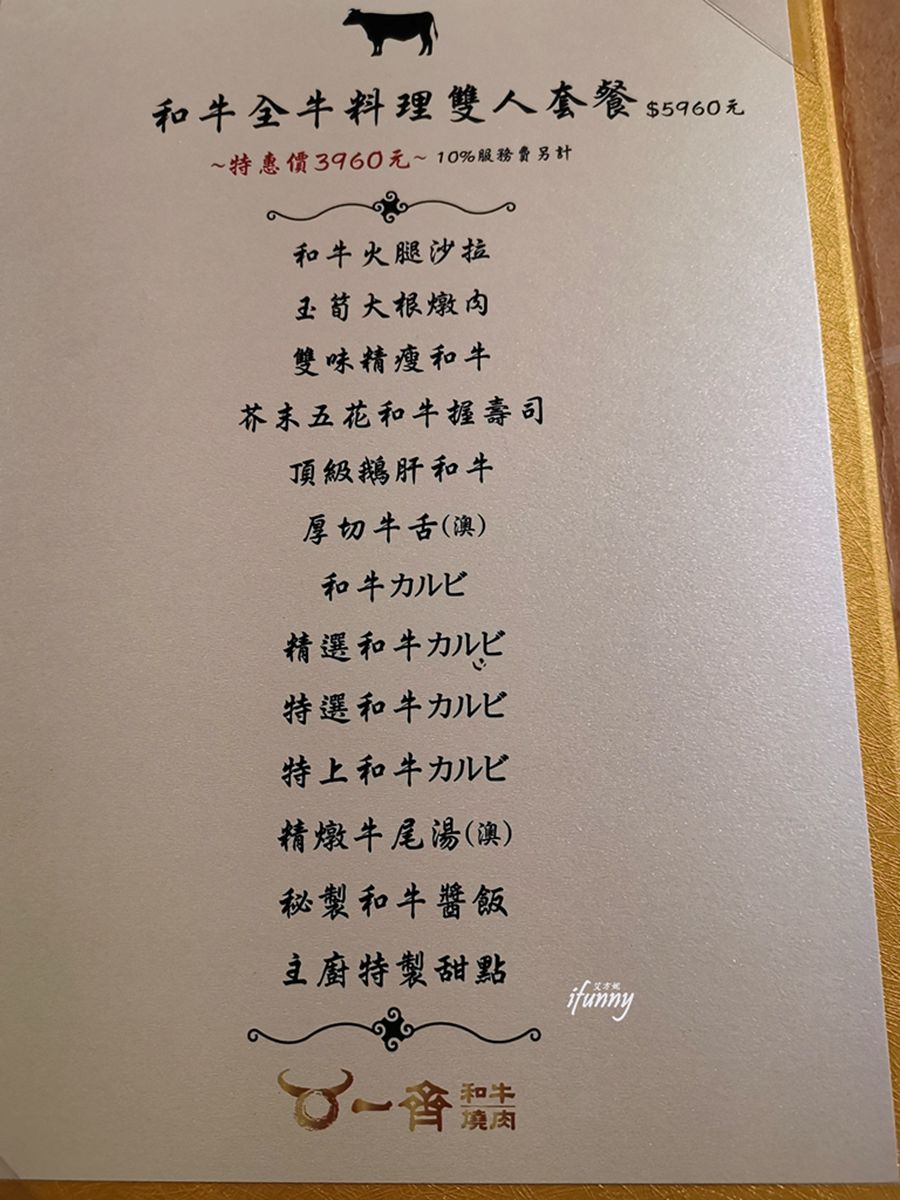 和牛全牛料理雙人套餐 $5960元
~特惠價3960元~ 10%服務費另計
和牛火腿沙拉
玉筍大根燉肉
雙味精瘦和牛
芥末五花和牛握壽司
頂級鵝肝和牛
厚切牛舌(澳)
和牛カルビ
精選和牛カルビ
特選和牛カルビ
特上和牛カルビ
精燉牛尾湯(澳)
秘製和牛醬飯
主廚特製甜點
艾方妮
ifunny
一齊 和牛
燒肉